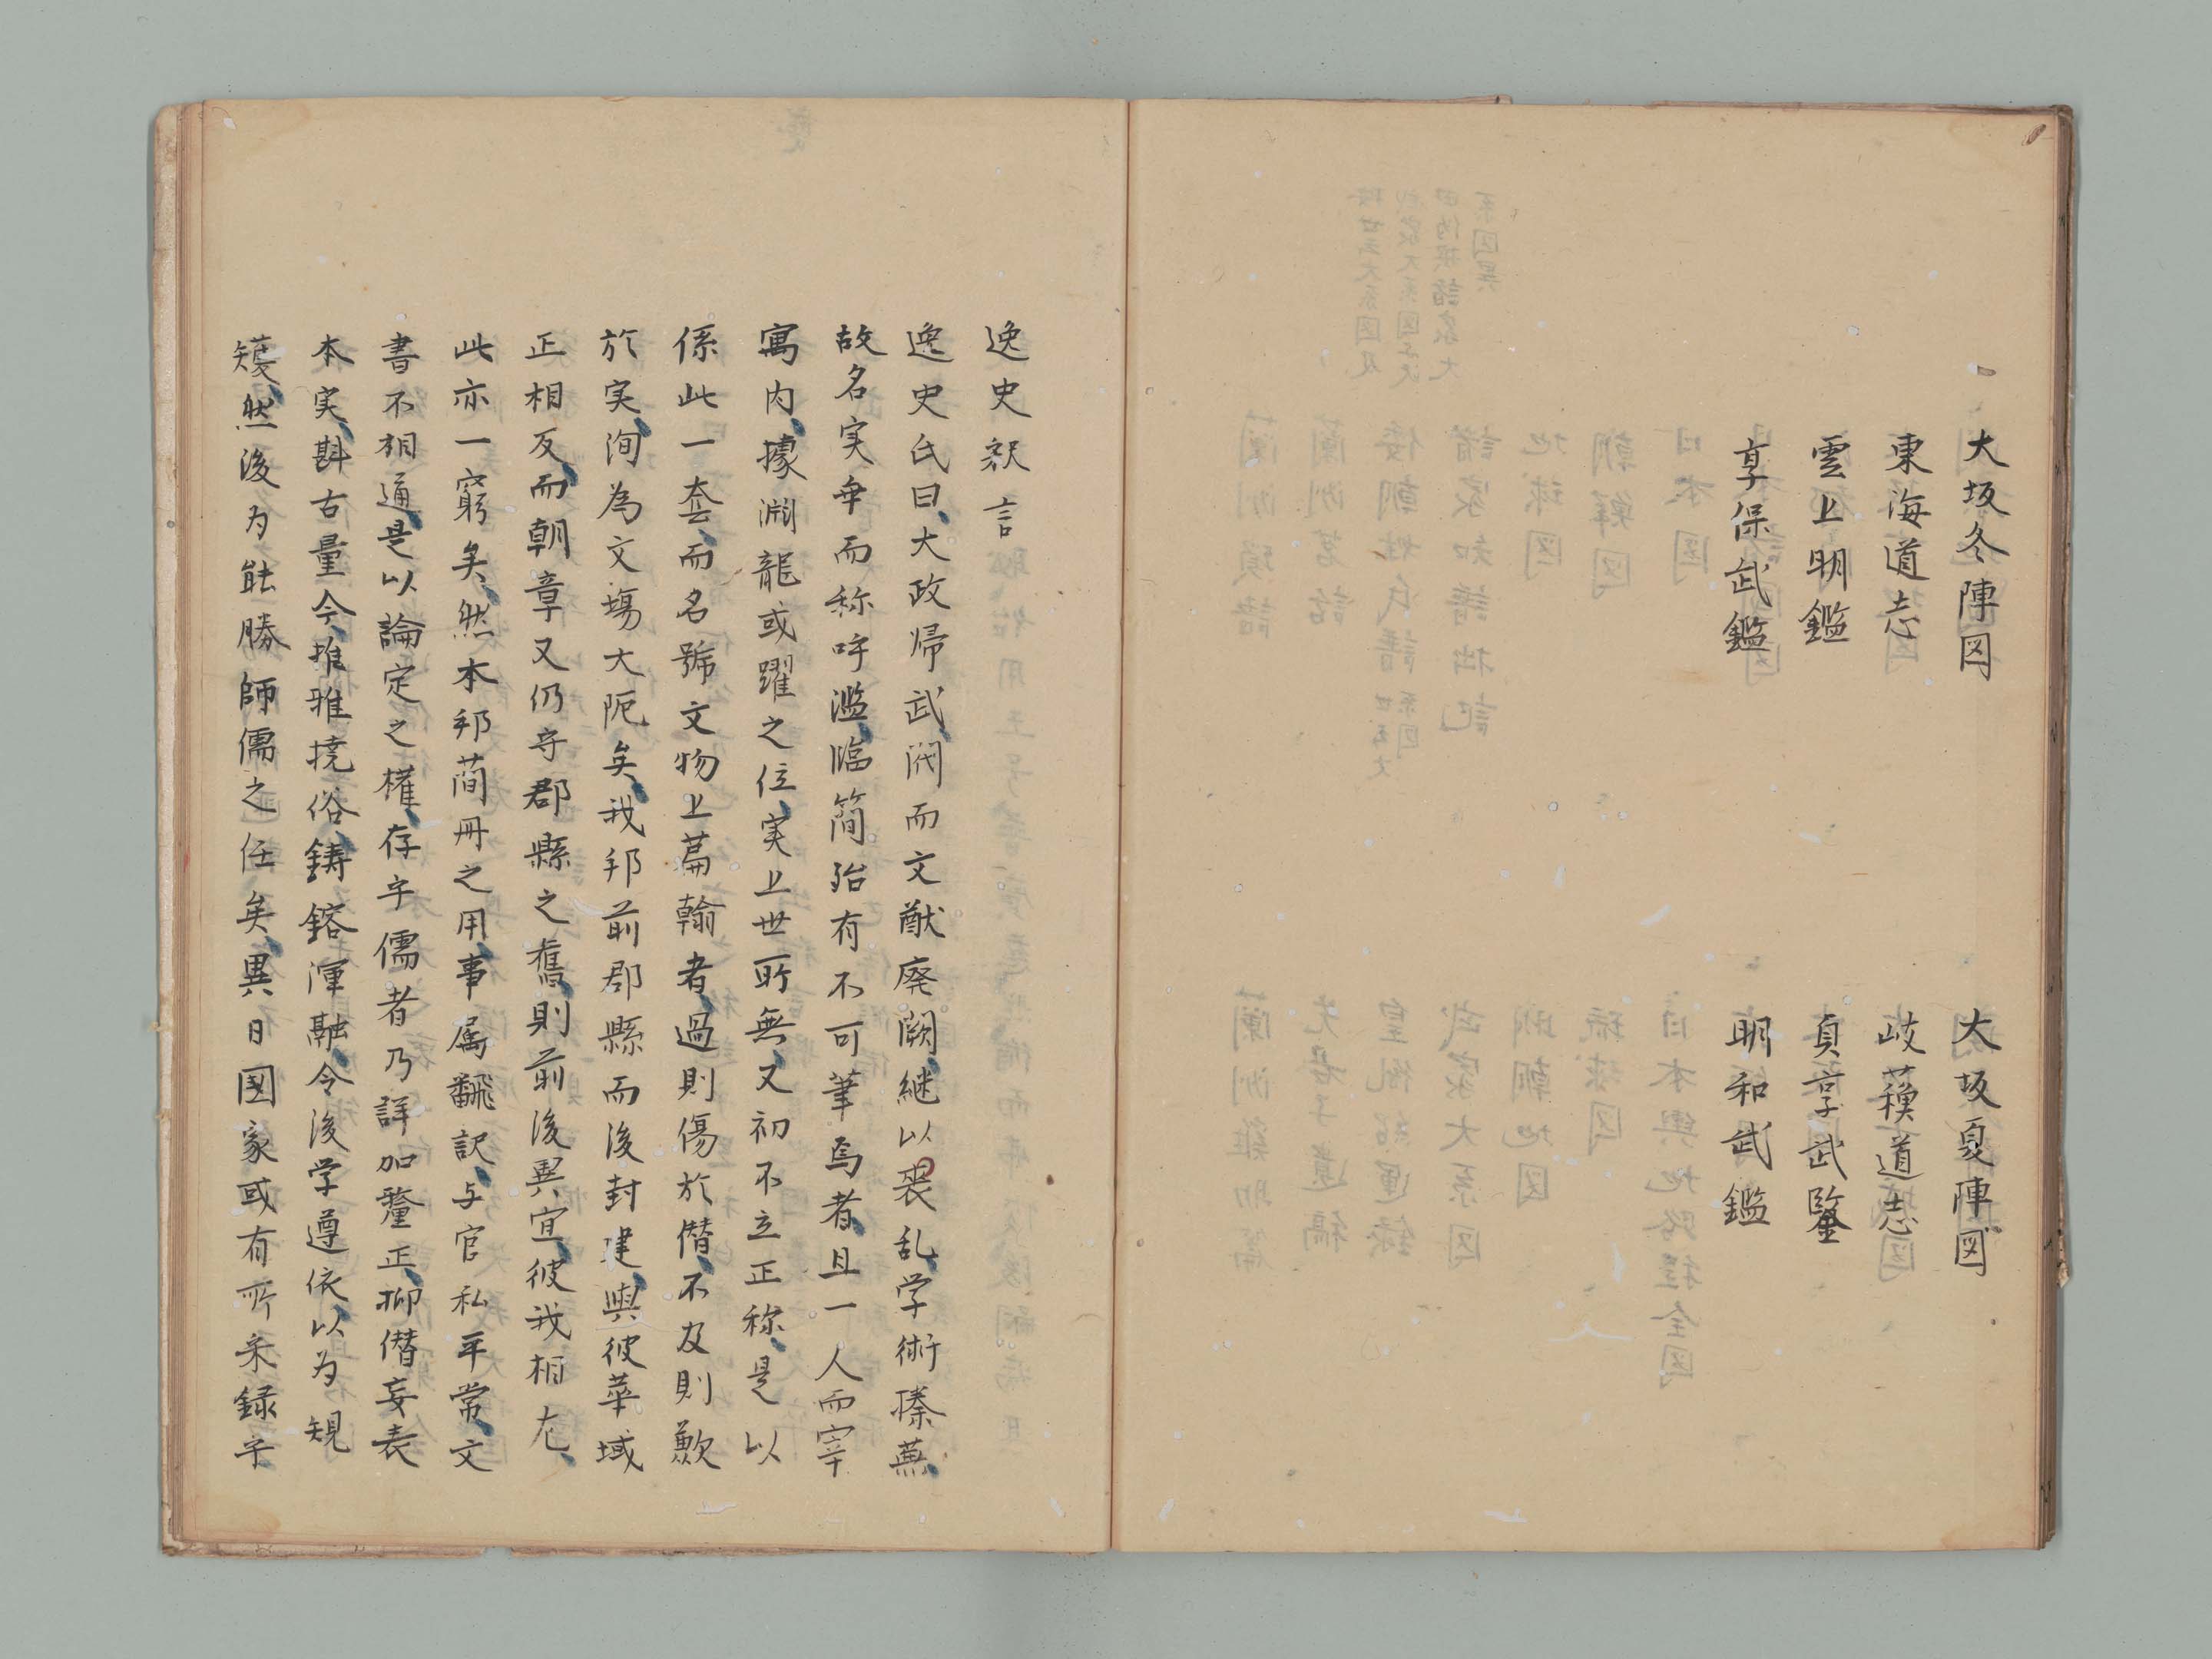 大坂冬陣図　大坂夏陣図
東海道志　岐蘓道志
雲上明鑑　貞享武鑒
享保武鑑　明和武鑑
逸史釈言
逸史氏曰、大政帰武、閥而文猷廃闕、継以喪乱、学術榛蕪、
故名実乖而称呼濫、臨簡殆有不可筆焉者、且一人而宰
寓内、據淵龍或躍之位、実上世所無、又初不立正称、是以
係此一套、而名號文物上萹翰者、過則傷於僭、不及則歉
於実、洵為文場大阨矣、我邦前郡縣而後封建、與彼華域
正相反、而朝章又仍守郡縣之舊、則前後異宜、彼我相尤、
此亦一窮矣、然本邦蕳冊之用、事属飜訳、与官私平常、文
書不相通、是以論定之權、存乎儒者、乃詳加釐正、抑僭妄表
本実、斟古量今、推雅撓俗、鋳鎔渾融、令後学遵依、以为規
矱、然後为能勝師儒之任矣、異日國家或有所采録乎